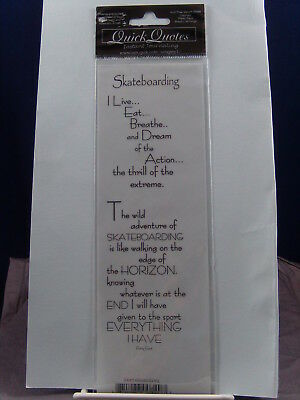 Quick Quotes
Instant Journaling
Skateboarding
I Live...
Eat...
Breathe...
and Dream
of the
Action...
the thrill of the
extreme.
The wild
adventure of
SKATEBOARDING
is like walking on the
edge of
the HORIZON,
knowing
whatever is at the
END I will have
given to the sport
EVERYTHING
I HAVE